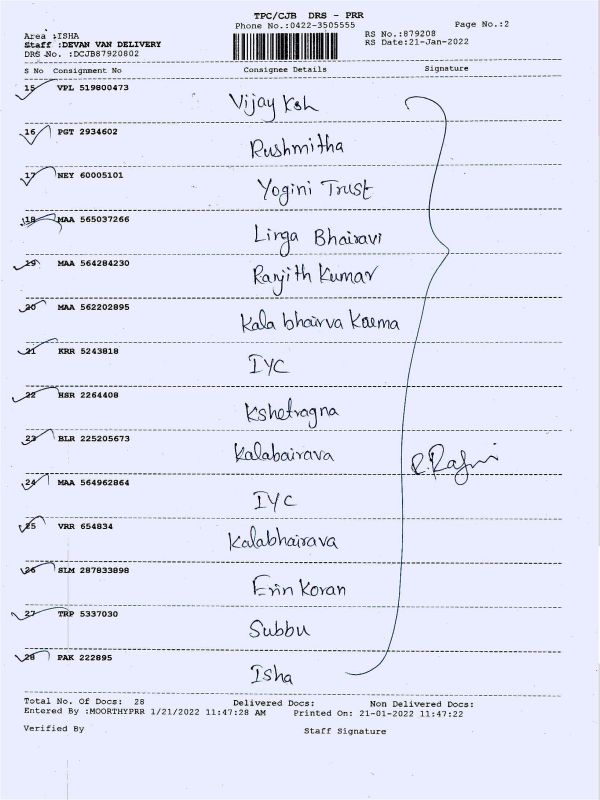 TPC/CJB DRS - PRR
Phone No.:0422-3505555
Page No.:2
Area :ISHA
RS No.:879208
Staff :DEVAN VAN DELIVERY
RS Date:21-Jan-2022
DRS No. :DCJB87920802
S No Consignment No Consignee Details Signature
15 VPL 519800473
Vijay Ksh
16 PGT 2934602
Rushmitha
17 NEY 60005101
Yogini Trust
18 MAA 565037266
Linga Bhairavi
19 MAA 564284230
Ranjith Kumar
20 MAA 562202895
Kala bhairva Karma
21 KRR 5243818
IYC
22 HSR 2264408
Kshetragna
23 BLR 225205673
Kalabairava
R.Rajni
24 MAA 564962864
IYC
25 VRR 654834
Kalabhairava
26 SLM 287833898
Erin Koran
27 TRP 5337030
Subbu
28 PAK 222895
Isha
Total No. Of Docs: 28 Delivered Docs: Non Delivered Docs:
Entered By :MOORTHYPRR 1/21/2022 11:47:28 AM Printed On: 21-01-2022 11:47:22
Verified By Staff Signature